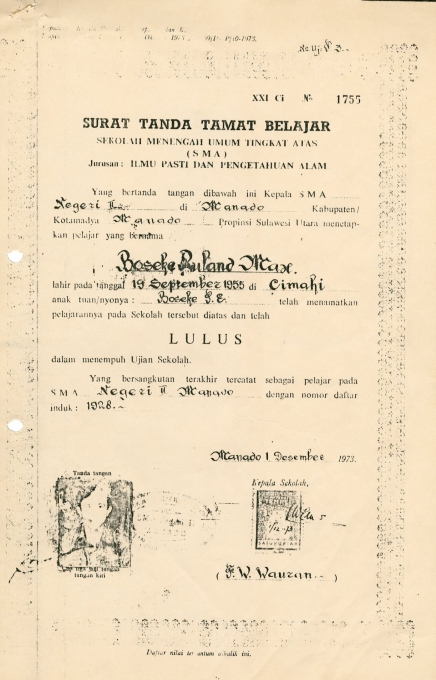 No Uj. 
XXI Ci № 1755
SURAT TANDA TAMAT BELAJAR
SEKOLAH MENENGAH UMUM TINGKAT ATAS
(SMA)
Jurusan : ILMU PASTI DAN PENGETAHUAN ALAM
Yang bertanda tangan dibawah ini Kepala SMA
Negeri II di Manado Kabupaten/
Kotamadya Manado Propinsi Sulawesi Utara menetap-
kan pelajar yang bernama
Boseke Ruland Max.
lahir pada tanggal 19 September 1955 di Cimahi
anak tuan/nyonya : Boseke telah menamatkan
pelajarannya pada Sekolah tersebut diatas dan telah
LULUS
dalam menempuh Ujian Sekolah.
Yang bersangkutan terakhir tercatat sebagai pelajar pada
SMA Negeri II Manado dengan nomor daftar
induk : 1928.-
Manado 1 Desember 1973.
Tanda tangan
Kepala Sekolah,
tangan kiri
(F. W. Wauran)
Daftar nilai tercantum dibalik ini.